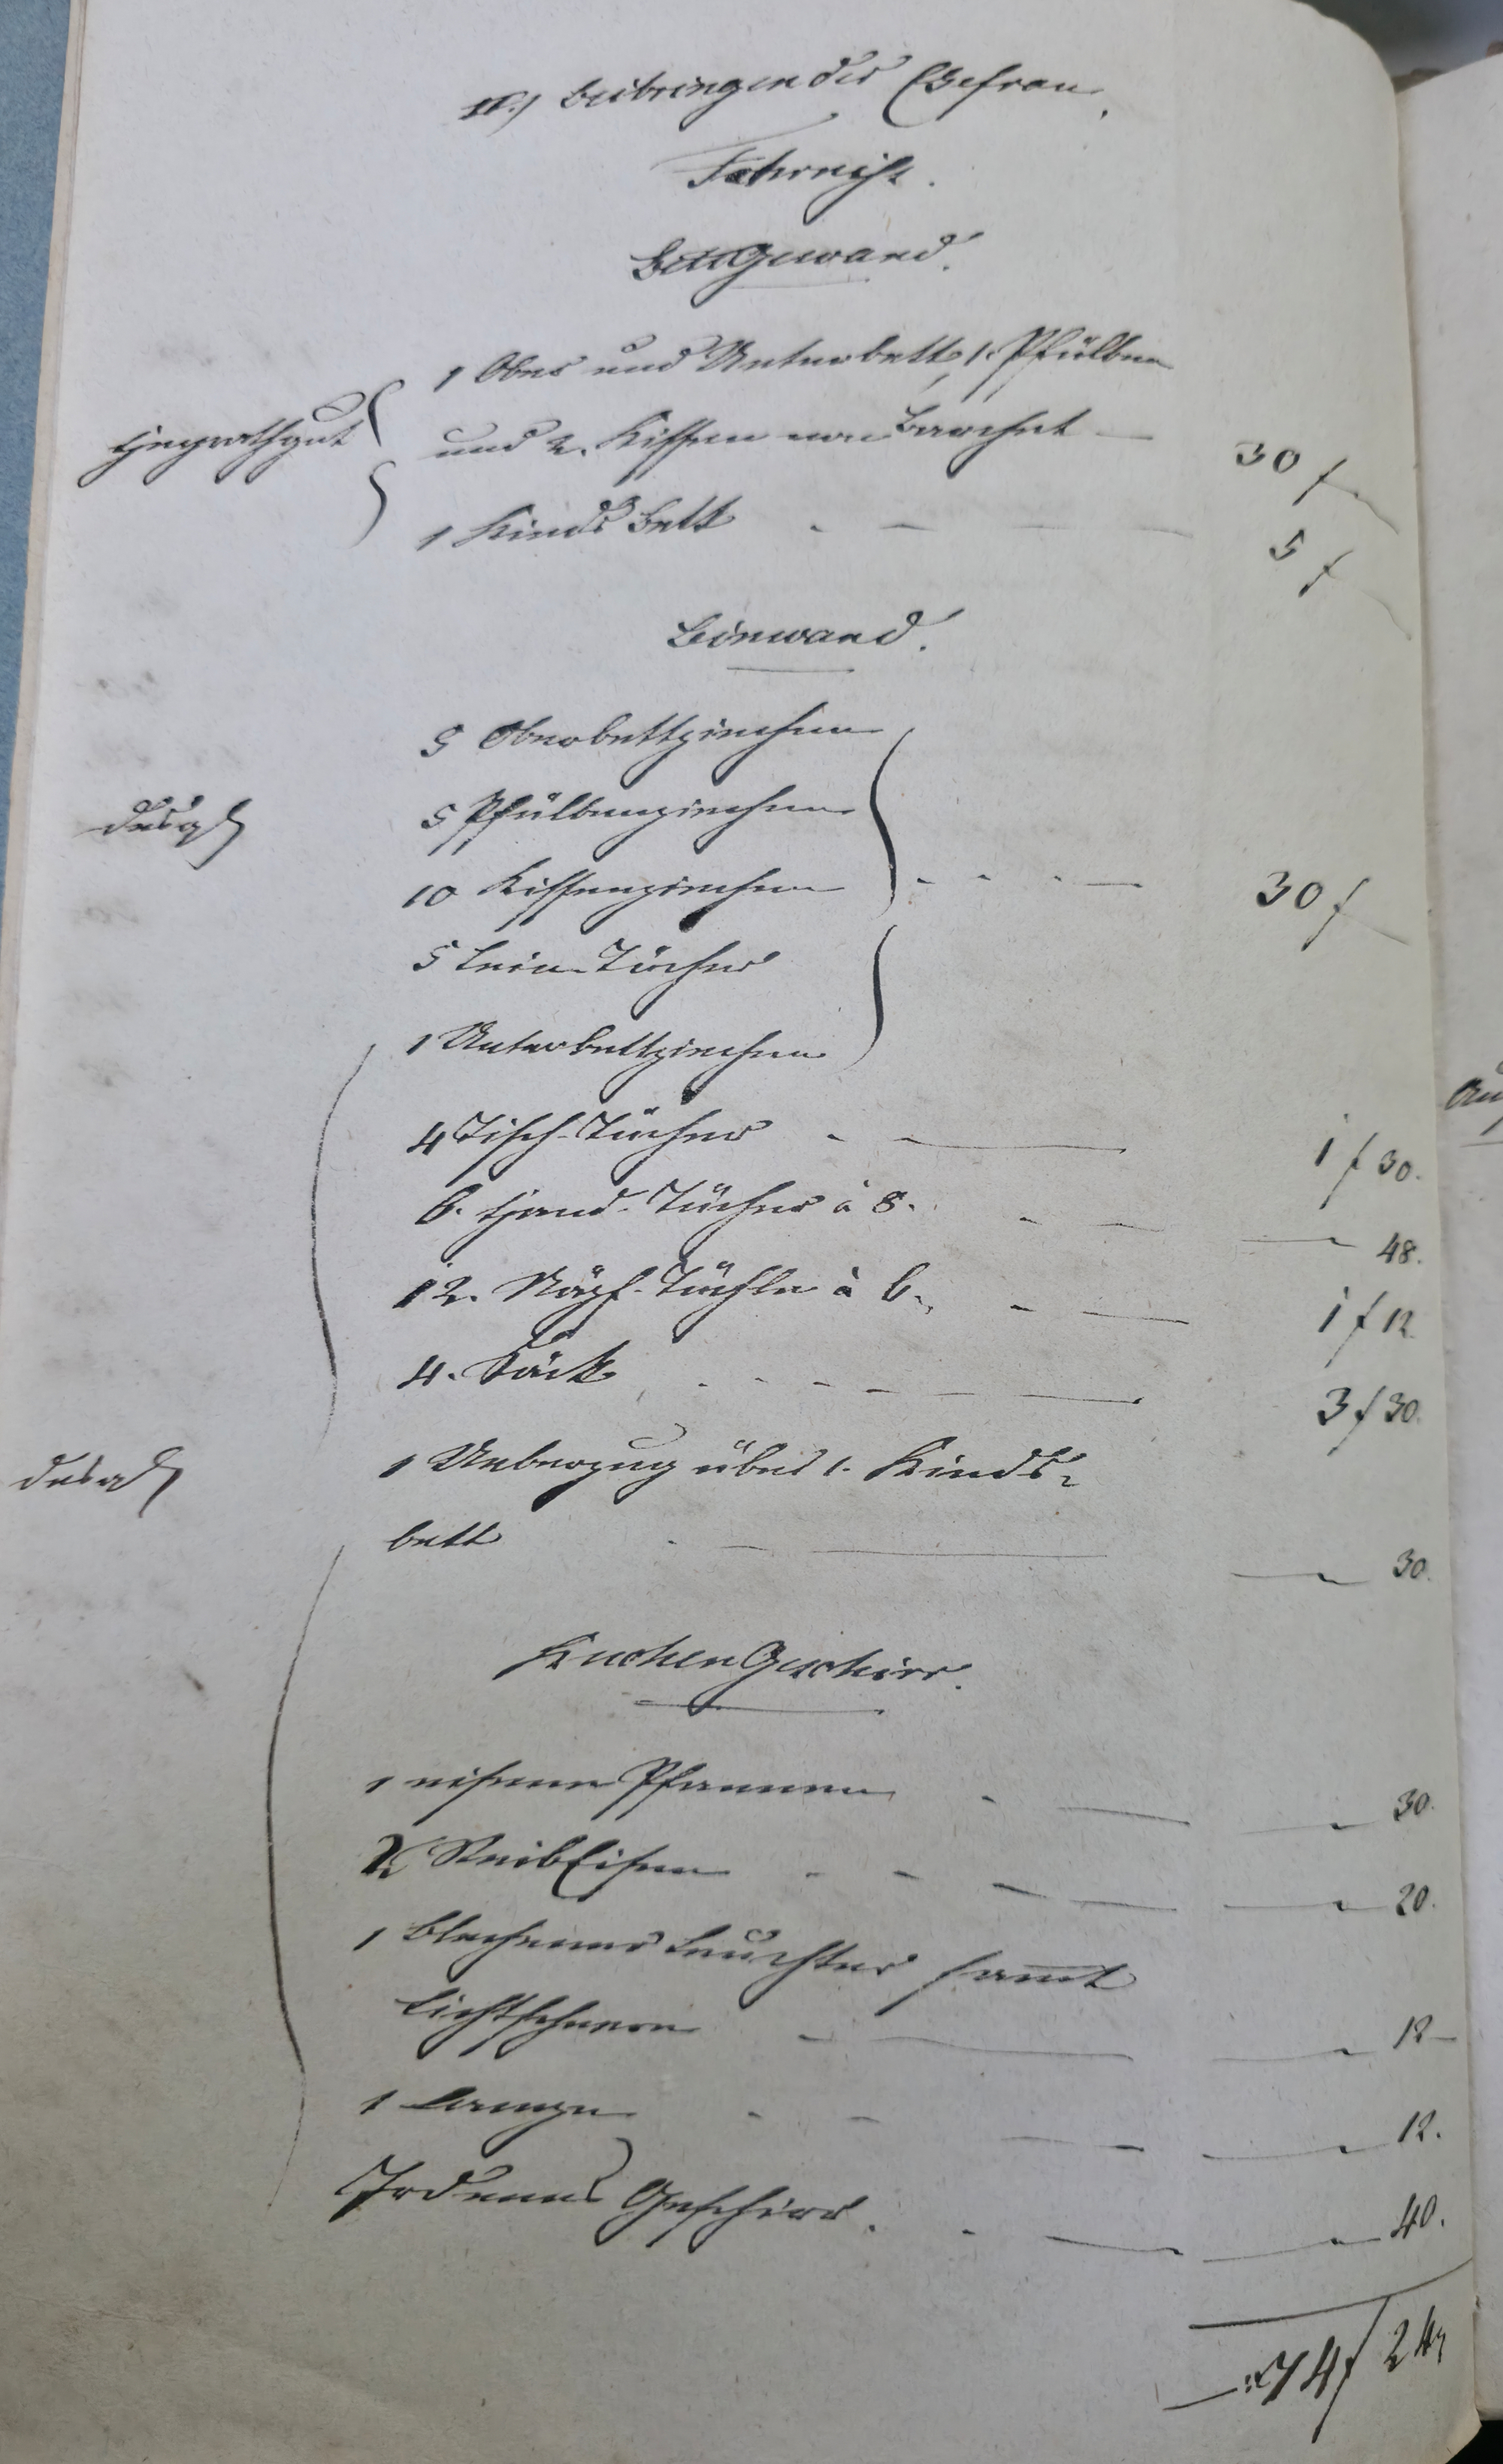 II.) Beibringen der Ehefrau.
Fahrniß.
Bettgewand.
1 Ober und Unterbett, 1. Pfülben
Heyrathgut
und 2. Kissen von Barchet — 30 f
1 Kinds Bett . — — 5 f
Leinwand.
5 Oberbettziechen
5 Pfülbenziechen
desgl
10 Kissenziechen . . . — 30 f
5 Lein-Tücher
1 Unterbettziechen
4 Tisch-Tücher . — 1 f 30.
6. Hand-Tücher à 8. . — — 48.
12. Tüchle à 6. — — 1 f 12
4. Säck . . — — — 3 f 30.
desgl
1 Ueberzug über 1. Kinds-
bett . — — — 30.
Kuchen Geschirr.
1 eisene Pfannen . — — 30.
2 Reib Eisen . - — — — 20.
1 blechener Leuchter samt
Lichtscheren — — — 12 —
1 Lampe . — — — 12.
Irdenes Geschirr. . — — 40.
74 f 24